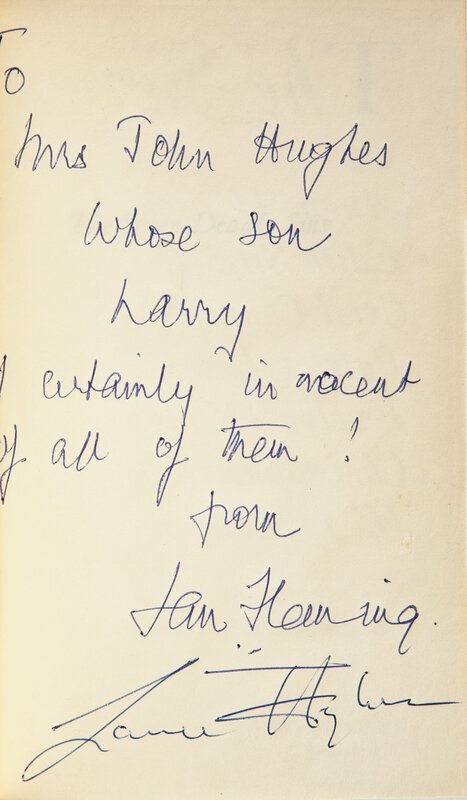 To
Mrs John Hughes
whose son
Larry
certainly innocent
of all of them !
from
Ian Fleming.